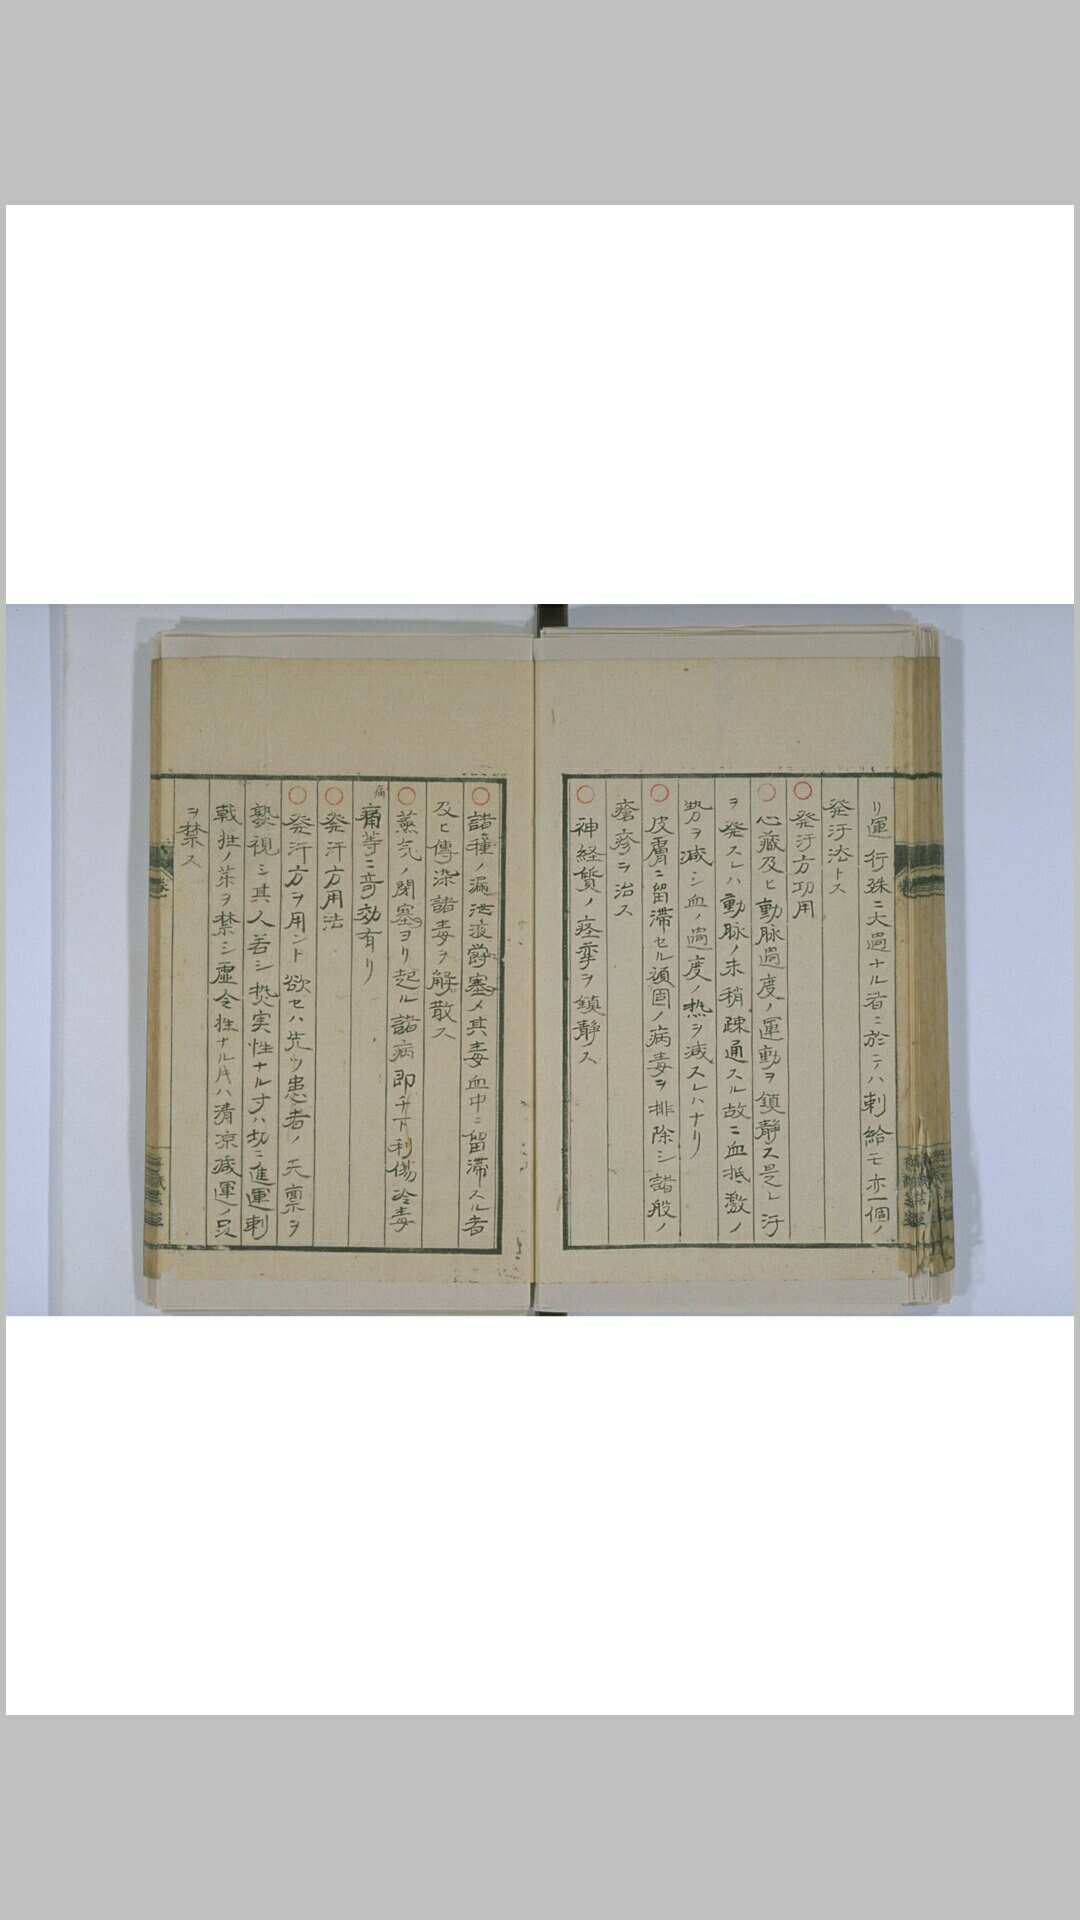 リ運行殊ニ大過ナル者ニ於テハ刺絡モ亦一個ノ
発汗法トス
○発汗方功用
○心臓及ヒ動脉過度ノ運動ヲ鎮静ス是レ汗
ヲ発スレハ動脉ノ末稍疎通スル故ニ血抵激ノ
勢ヲ減シ血ノ過度ノ熱ヲ減スレハナリ
○皮膚ニ留滞セル頑固ノ病毒ヲ排除シ諸般ノ
瘡疹ヲ治ス
○神経質ノ痙挛ヲ鎮静ス
○諸種ノ漏泄液欝塞メ其毒血中ニ留滞スル者
及ヒ傳染諸毒ヲ解散ス
○蒸気ノ閉塞ヨリ起ル諸病即チ下利傷冷毒
痛等ニ奇効有リ
痛
○発汗方用法
○発汗方ヲ用ント欲セハ先ツ患者ノ天禀ヲ
熟視シ其人若シ熱実性ナル寸ハ切ニ進運刺
戟性ノ薬ヲ禁シ虚冷性ナル片ハ清凉减運ノ品
ヲ禁ス